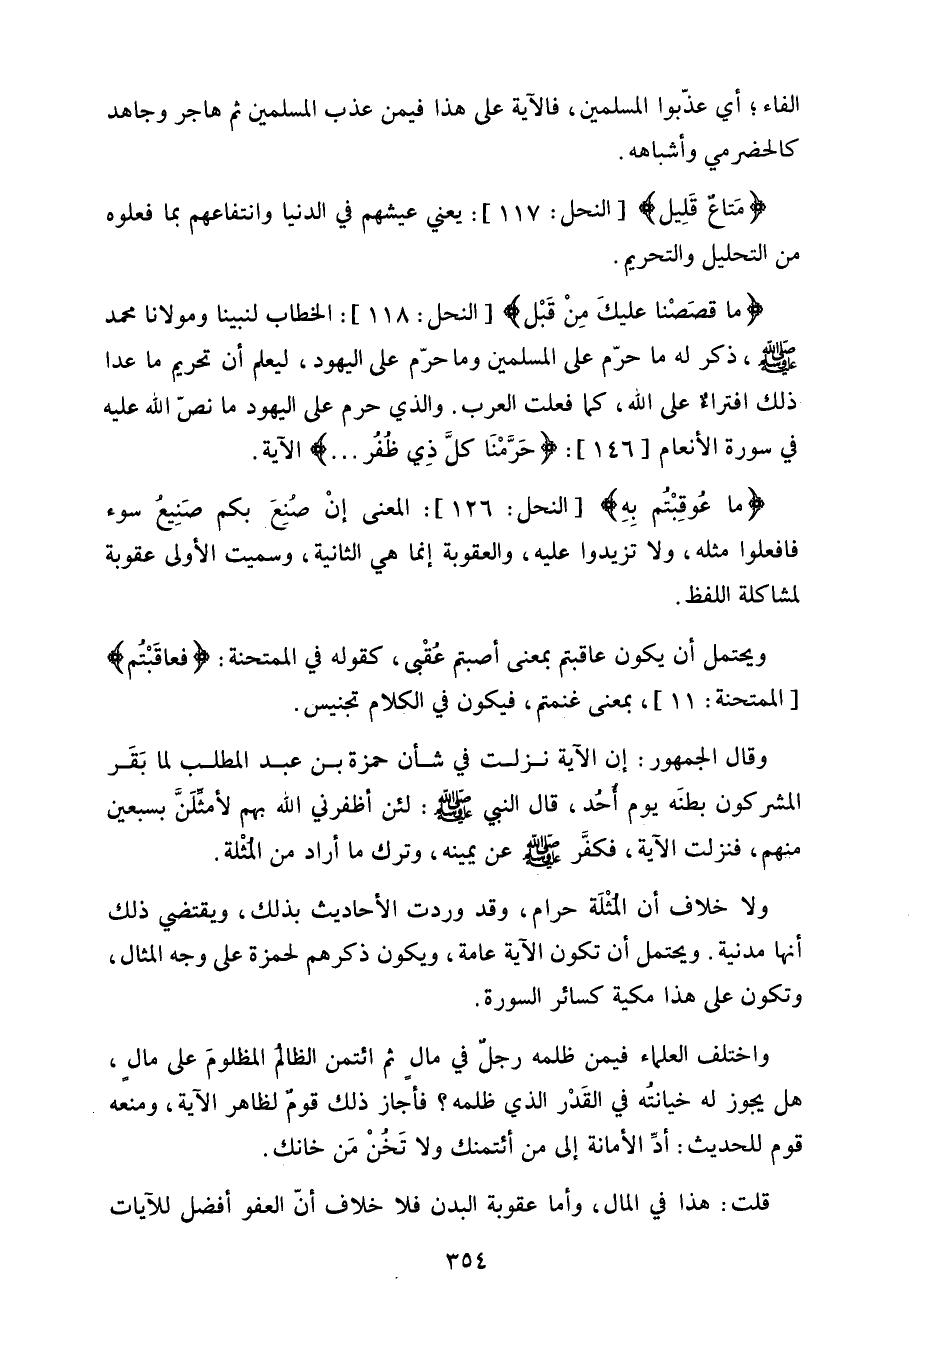 الفاء؛ أي عذّبوا المسلمين، فالآية على هذا فيمن عذب المسلمين ثم هاجر وجاهد
كالحضرمي وأشباهه.
﴿مَتاعٌ قَلِيل﴾ [النحل: ١١٧]: يعني عيشهم في الدنيا وانتفاعهم بما فعلوه
من التحليل والتحريم.
﴿ما قصَصْنا عليكَ مِنْ قَبْل﴾ [النحل: ١١٨]: الخطاب لنبينا ومولانا محمد
ﷺ، ذكر له ما حرّم على المسلمين وما حرّم على اليهود، ليعلم أن تحريم ما عدا
ذلك افتراءٌ على الله، كما فعلت العرب. والذي حرم على اليهود ما نصّ الله عليه
في سورة الأنعام [١٤٦]: ﴿حَرَّمْنَا كلَّ ذِي ظُفُر...﴾ الآية.
﴿ما عُوقِبْتُم بِهِ﴾ [النحل: ١٢٦]: المعنى إنْ صُنِعَ بكم صَنِيعُ سوء
فافعلوا مثله، ولا تزيدوا عليه، والعقوبة إنما هي الثانية، وسميت الأولى عقوبة
لمشاكلة اللفظ.
ويحتمل أن يكون عاقبتم بمعنى أصبتم عُقْبى، كقوله في الممتحنة: ﴿فعاقَبْتُم﴾
[الممتحنة: ١١]، بمعنى غنمتم، فيكون في الكلام تجنيس.
وقال الجمهور: إن الآية نزلت في شأن حمزة بن عبد المطلب لما بَقَر
المشركون بطنَه يوم أُحُد، قال النبي ﷺ: لئن أظفرني الله بهم لأمثِّلَنَّ بسبعين
منهم، فنزلت الآية، فكفَّر ﷺ عن يمينه، وترك ما أراد من المُثْلة.
ولا خلاف أن المُثْلَة حرام، وقد وردت الأحاديث بذلك، ويقتضي ذلك
أنها مدنية. ويحتمل أن تكون الآية عامة، ويكون ذكرهم لحمزة على وجه المثال،
وتكون على هذا مكية كسائر السورة.
واختلف العلماء فيمن ظلمه رجلٌ في مالٍ ثم ائتمن الظالمُ المظلومَ على مالٍ،
هل يجوز له خيانتُه في القَدْر الذي ظلمه؟ فأجاز ذلك قومٌ لظاهر الآية، ومنعه
قوم للحديث: أدِّ الأمانة إلى من أئتمنك ولا تَخُنْ مَن خانك.
قلت: هذا في المال، وأما عقوبة البدن فلا خلاف أنّ العفو أفضل للآيات
٣٥٤